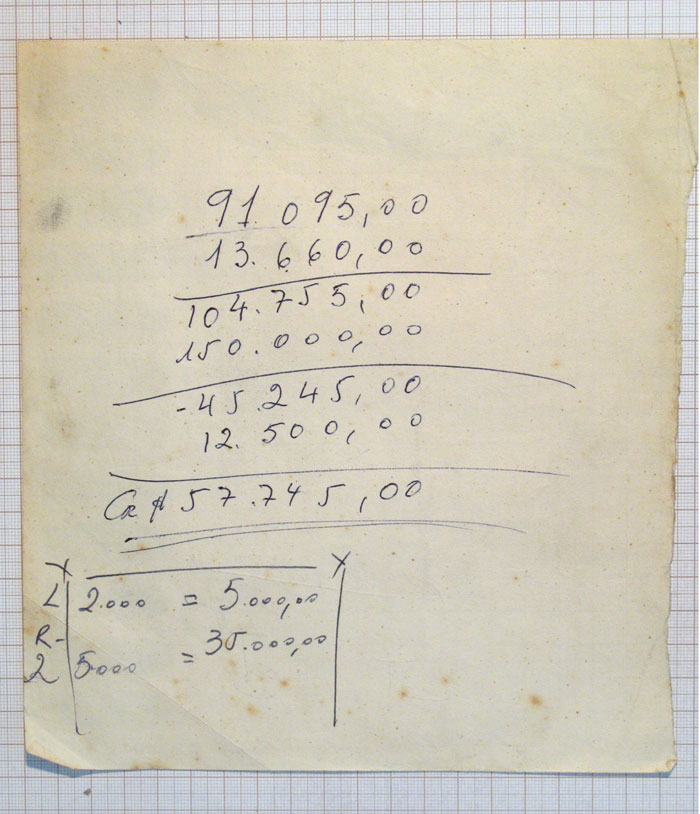 91.095,00
13.660,00
104.755,00
150.000,00
-45.245,00
12.500,00
Cr$ 57.745,00
L 2.000 = 5.000,00
R- 35.000,00
2 5000 =